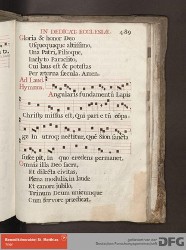 IN DEDICAT. ECCLESIÆ. 489
Gloria & honor Deo
Usquequaque altissimo.
Una Patri, Filioque,
Inclyto Paraclito,
Cui laus est & potestas
Per æterna sæcula. Amen.
Ad Laud.
Hymnus. Angularis fundamentū Lapis
Christus missus est, Qui parie tū cōpa-
ge In utroq nectitur, Quē Sion sancta
susce pit, in quo credens permanet.
Omnis illa Deo sacra,
Et dilecta civitas,
Plena modulis, in laude
Et canore jubilo,
Trinum Deum unicumque
Cum fervore prædicat.
DFG